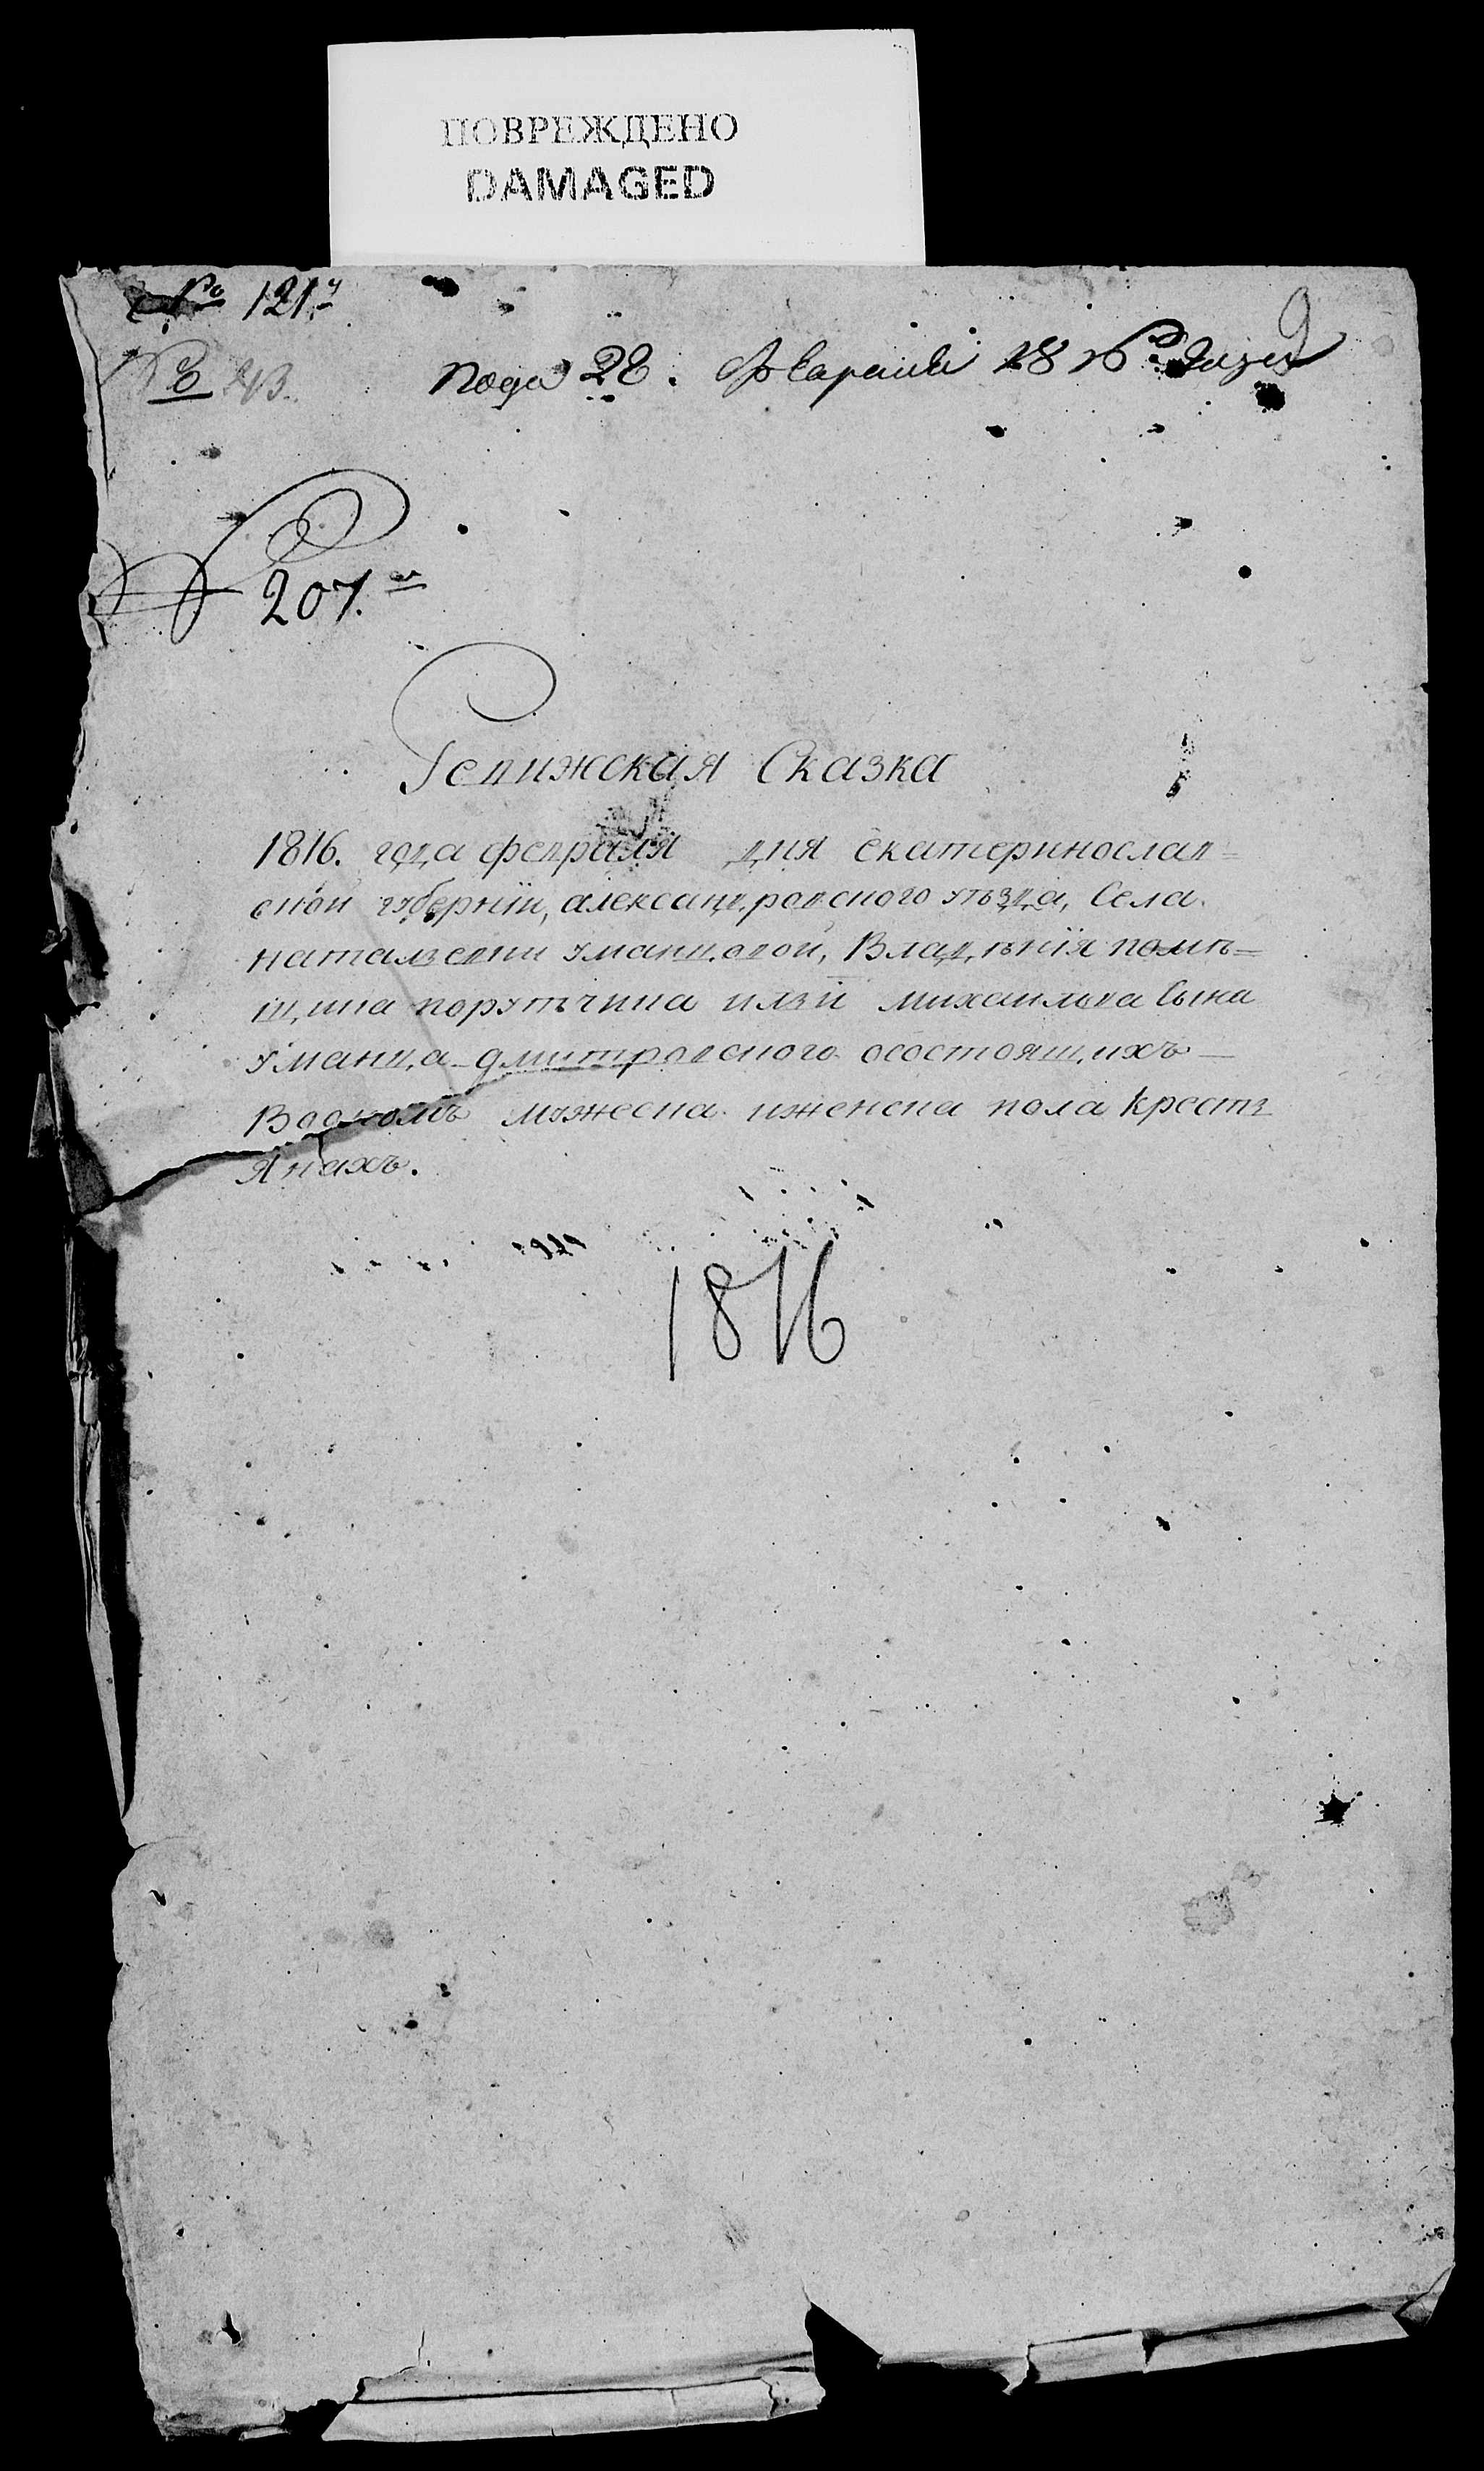 ПОВРЕЖДЕНО
DAMAGED
№ 121й
9
№ 213.
Пода 28. Февраля 1816 года
№ 207.
Ревижская Сказка
1816. года февраля дня екатеринослав=
ской губернїи, александровского уѣзда, Села
натальевки уманцовой, Владѣнїя помѣ=
щика порутчика ильи михаилова Сына
уманца-дмитровского осостоящихъ
Воономъ мужеска иженска пола крестъ
Янахъ.
1816